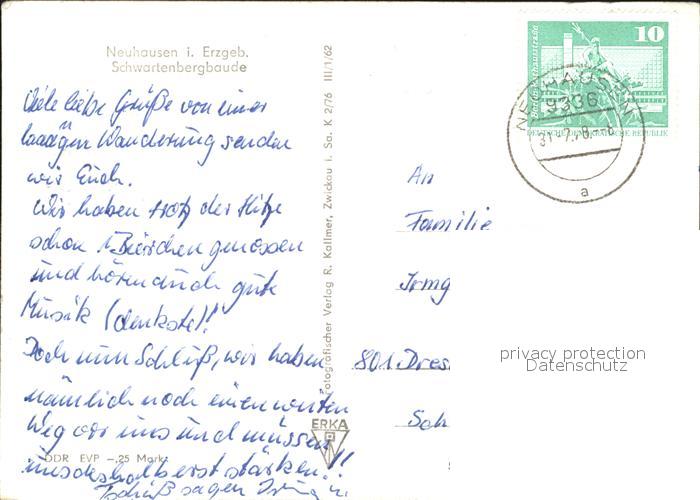 Neuhausen i. Erzgeb.
Schwartenbergbaude
Viele liebe Grüße von einer
Wanderung senden
wir Euch.
Wir haben trotz der Hitze
schon 1 Bierchen genossen
und hören auch gute
Musik (denkste)!
Doch nun Schluß, wir haben
nämlich noch einen weiten
Weg vor uns und müssen
uns deshalb erst stärken!!
Tschüß sagen
DDR EVP -.25 Mark
Fotografischer Verlag R. Kallmer, Zwickau i. Sa. K 2/76 III/1/62
ERKA
10
DEUTSCHE DEMOKRATISCHE REPUBLIK
NEUHAUSEN
9336
a
An
Familie
Irmg
801 Dres
Sch
privacy protection
Datenschutz